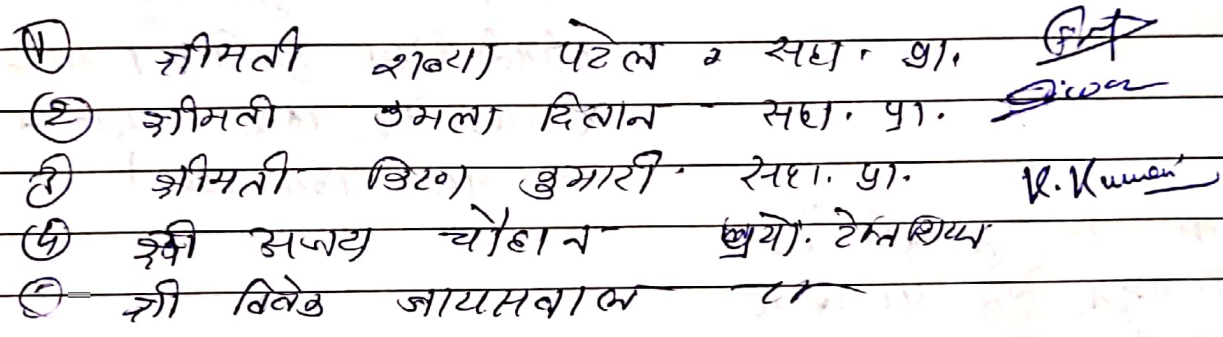 ① श्रीमती शव्या पटेल सहा. प्रा.
② श्रीमती कमला दिवान सहा. प्रा. Diwan
③ श्रीमती किरण कुमारी सहा. प्रा. K. Kumari
④ श्री अजय चौहान प्रयो. टेक्निशियन
⑤ श्री विवेक जायसवाल "